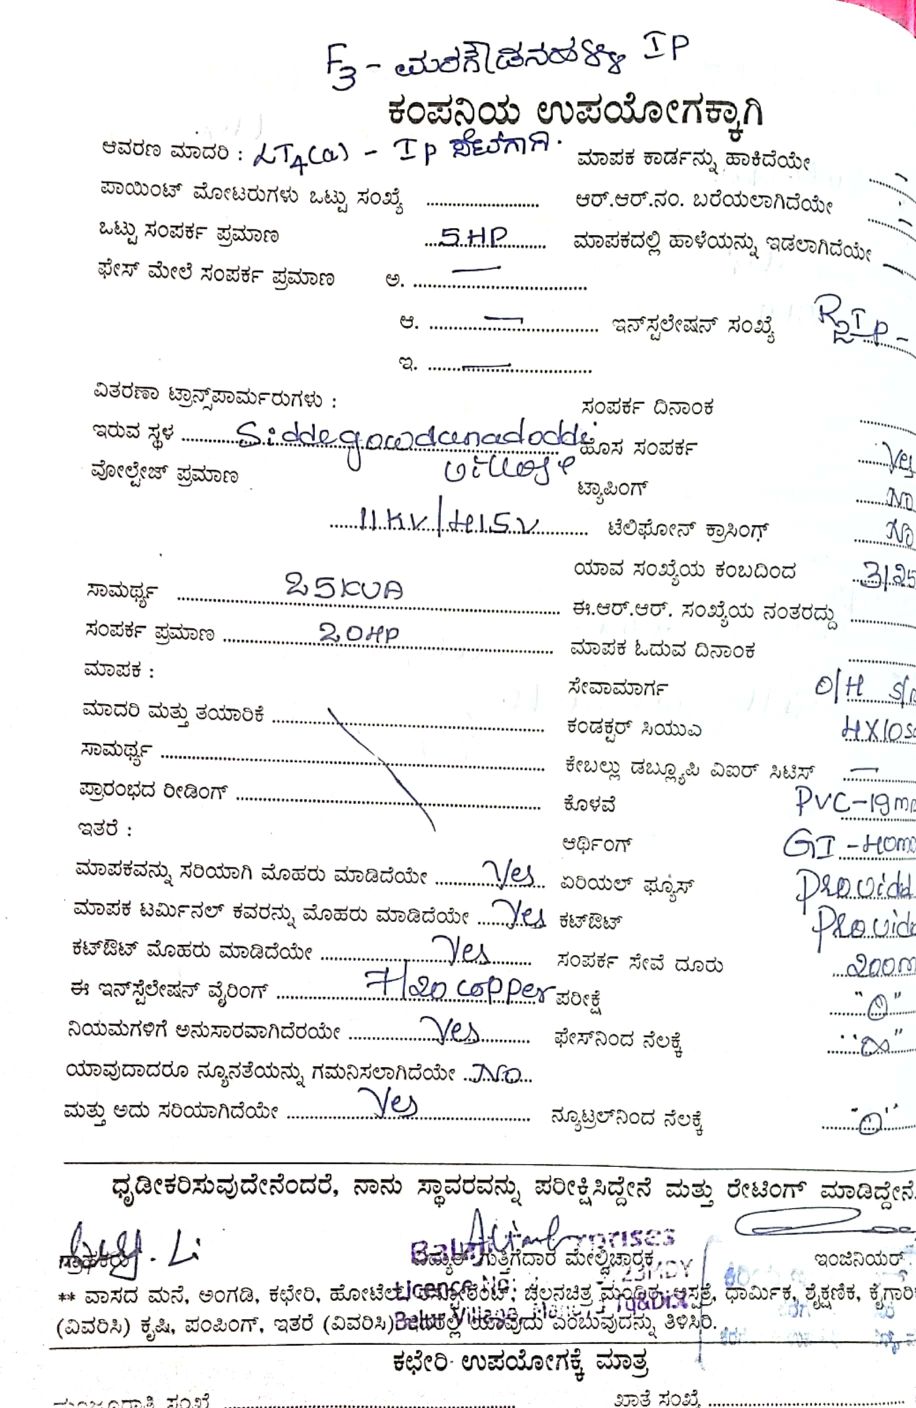 F3 - ಮರಗೌಡನಹಳ್ಳಿ IP
ಕಂಪನಿಯ ಉಪಯೋಗಕ್ಕಾಗಿ
ಆವರಣ ಮಾದರಿ : LT4(a) - IP ಸೆಟ್‌ಗಾಗಿ. ಮಾಪಕ ಕಾರ್ಡನ್ನು ಹಾಕಿದೆಯೇ
ಪಾಯಿಂಟ್ ಮೋಟರುಗಳು ಒಟ್ಟು ಸಂಖ್ಯೆ ........ ಆರ್.ಆರ್.ನಂ. ಬರೆಯಲಾಗಿದೆಯೇ
ಒಟ್ಟು ಸಂಪರ್ಕ ಪ್ರಮಾಣ 5HP ಮಾಪಕದಲ್ಲಿ ಹಾಳೆಯನ್ನು ಇಡಲಾಗಿದೆಯೇ
ಫೇಸ್ ಮೇಲೆ ಸಂಪರ್ಕ ಪ್ರಮಾಣ ಅ. —
ಆ. — ಇನ್‌ಸ್ಟಲೇಷನ್ ಸಂಖ್ಯೆ
ಇ. —
ವಿತರಣಾ ಟ್ರಾನ್ಸ್‌ಪಾರ್ಮರುಗಳು : ಸಂಪರ್ಕ ದಿನಾಂಕ
ಇರುವ ಸ್ಥಳ Siddegowdanadoddi ಹೊಸ ಸಂಪರ್ಕ Yes
ವೋಲ್ಟೇಜ್ ಪ್ರಮಾಣ village ಟ್ಯಾಪಿಂಗ್ No
11KV/415V ಟೆಲಿಫೋನ್ ಕ್ರಾಸಿಂಗ್ No
ಯಾವ ಸಂಖ್ಯೆಯ ಕಂಬದಿಂದ 3/25
ಸಾಮರ್ಥ್ಯ 25KVA ಈ.ಆರ್.ಆರ್. ಸಂಖ್ಯೆಯ ನಂತರದ್ದು
ಸಂಪರ್ಕ ಪ್ರಮಾಣ 20HP ಮಾಪಕ ಓದುವ ದಿನಾಂಕ
ಮಾಪಕ : ಸೇವಾಮಾರ್ಗ O/H
ಮಾದರಿ ಮತ್ತು ತಯಾರಿಕೆ ........ ಕಂಡಕ್ಟರ್ ಸಿಯುಎ 4X10
ಸಾಮರ್ಥ್ಯ ........ ಕೇಬಲ್ಲು ಡಬ್ಲ್ಯೂಪಿ ವಿಐರ್ ಸಿಟಿಸ್ —
ಪ್ರಾರಂಭದ ರೀಡಿಂಗ್ ........ ಕೊಳವೆ PVC-19m
ಇತರೆ : ಆರ್ಥಿಂಗ್ GI -
ಮಾಪಕವನ್ನು ಸರಿಯಾಗಿ ಮೊಹರು ಮಾಡಿದೆಯೇ Yes ಏರಿಯಲ್ ಫ್ಯೂಸ್ Provid
ಮಾಪಕ ಟರ್ಮಿನಲ್ ಕವರನ್ನು ಮೊಹರು ಮಾಡಿದೆಯೇ Yes ಕಟ್‌ಔಟ್ Provid
ಕಟ್‌ಔಟ್ ಮೊಹರು ಮಾಡಿದೆಯೇ Yes ಸಂಪರ್ಕ ಸೇವೆ ದೂರು 200m
ಈ ಇನ್‌ಸ್ಟೆಲೇಷನ್ ವೈರಿಂಗ್ 7/20 copper ಪರೀಕ್ಷೆ "0"
ನಿಯಮಗಳಿಗೆ ಅನುಸಾರವಾಗಿದೆರಯೇ Yes ಫೇಸ್‌ನಿಂದ ನೆಲಕ್ಕೆ "∞"
ಯಾವುದಾದರೂ ನ್ಯೂನತೆಯನ್ನು ಗಮನಿಸಲಾಗಿದೆಯೇ No
ಮತ್ತು ಅದು ಸರಿಯಾಗಿದೆಯೇ Yes ನ್ಯೂಟ್ರಲ್‌ನಿಂದ ನೆಲಕ್ಕೆ "0"
ಧೃಡೀಕರಿಸುವುದೇನೆಂದರೆ, ನಾನು ಸ್ಥಾವರವನ್ನು ಪರೀಕ್ಷಿಸಿದ್ದೇನೆ ಮತ್ತು ರೇಟಿಂಗ್ ಮಾಡಿದ್ದೇನೆ.
ಗ್ರಾಹಕರು ಗುತ್ತಿಗೆದಾರ ಮೇಲ್ವಿಚಾರಕ ಇಂಜಿನಿಯರ್.
** ವಾಸದ ಮನೆ, ಅಂಗಡಿ, ಕಛೇರಿ, ಹೋಟೆಲ್, ಚಲನಚಿತ್ರ ಮಂದಿರ, ಆಸ್ಪತ್ರೆ, ಧಾರ್ಮಿಕ, ಶೈಕ್ಷಣಿಕ,
(ವಿವರಿಸಿ) ಕೃಷಿ, ಪಂಪಿಂಗ್, ಇತರೆ (ವಿವರಿಸಿ) ಇದರಲ್ಲಿ ಯಾವುದು ಎಂಬುವುದನ್ನು ತಿಳಿಸಿರಿ.
ಕಛೇರಿ ಉಪಯೋಗಕ್ಕೆ ಮಾತ್ರ
ಖಾತೆ ಸಂಖ್ಯೆ